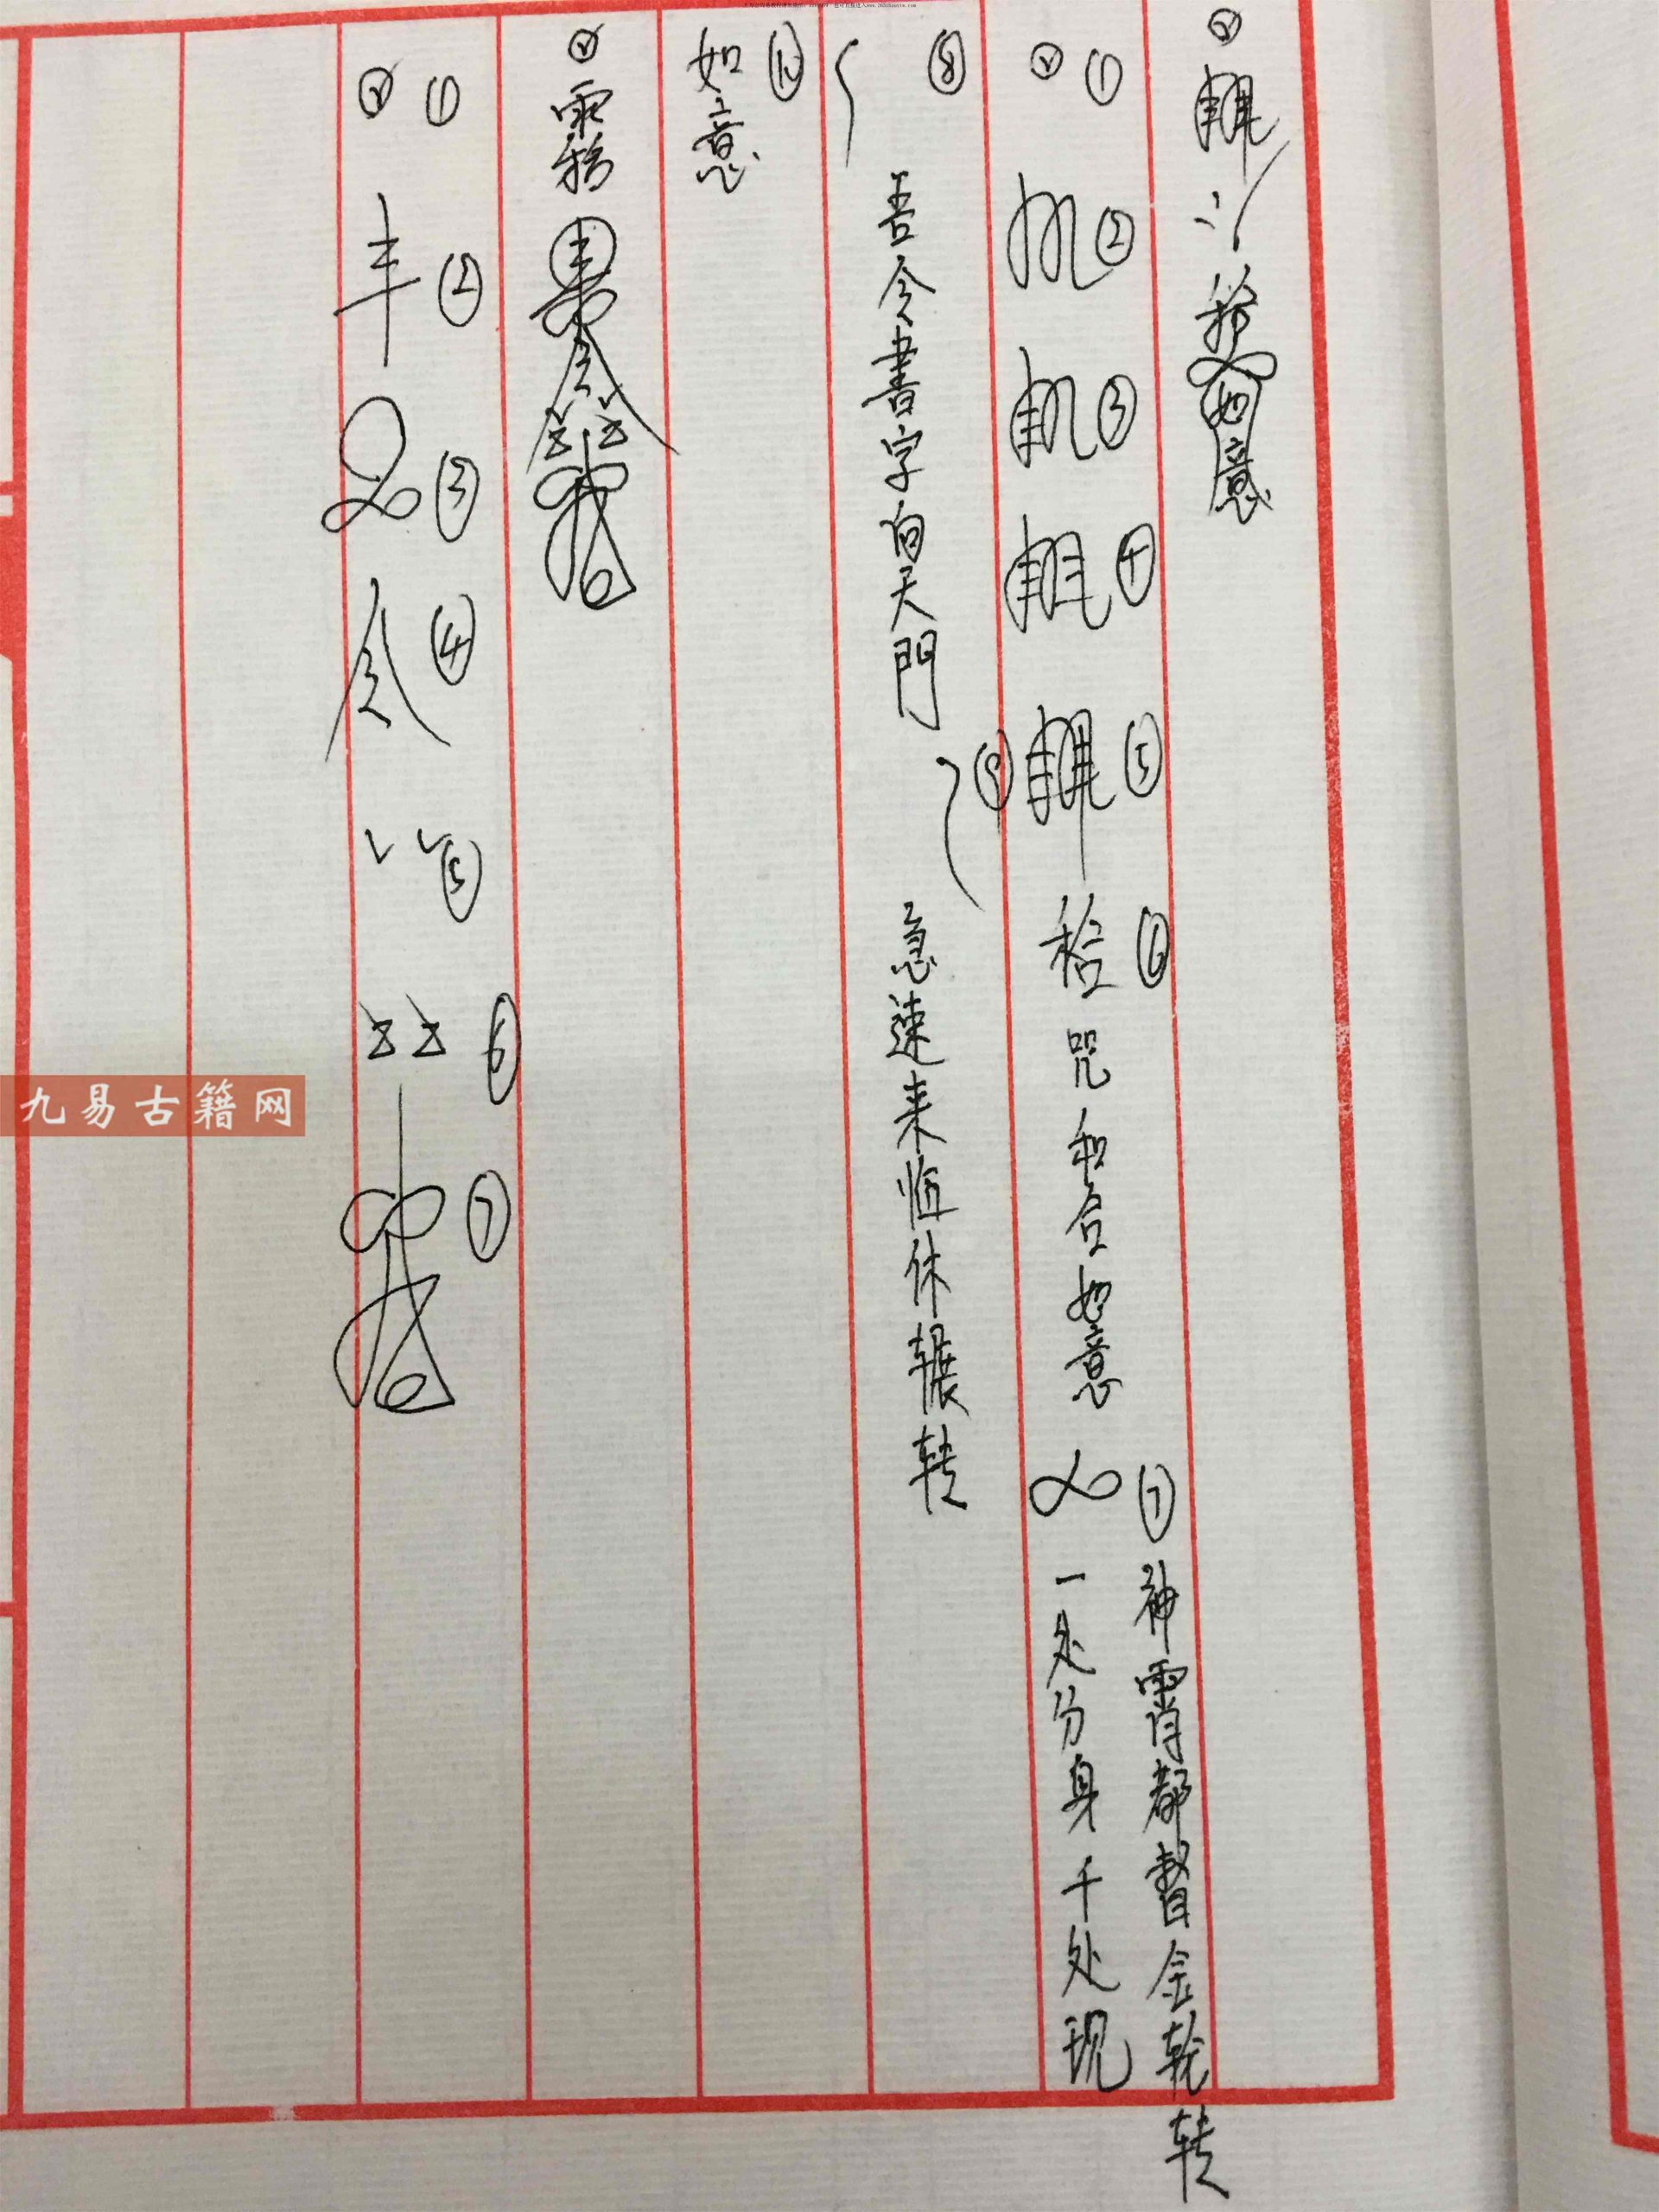 如意
① ② ③ ④ ⑤ ⑥ 咒 和合如意 ⑦ 神霄都督金轮转
一处分身千处现
⑧ 吾今書字向天門 ⑨ 急速来临休辗转
⑩ 如意
霧
① ② ③ ④ ⑤ ⑥ ⑦
九易古籍网